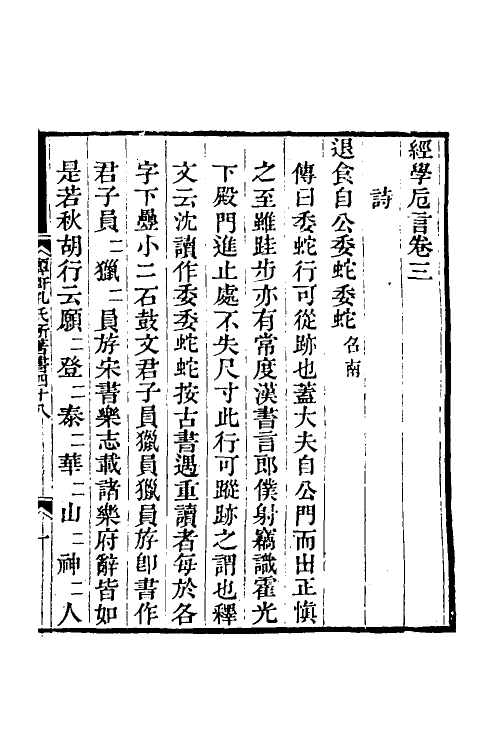 經學卮言卷三
詩
退食自公委蛇委蛇 召南
傳曰委蛇行可從跡也蓋大夫自公門而出正慎
之至雖跬步亦有常度漢書言郎僕射竊識霍光
下殿門進止處不失尺寸此行可蹤跡之謂也釋
文云沈讀作委委蛇蛇按古書遇重讀者每於各
字下疊小二石鼓文君子員獵員獵員斿卽書作
君子員二獵二員斿宋書樂志載諸樂府辭皆如
是若秋胡行云願二登二泰二華二山二神二人
顨軒孔氏所著書四十八
一